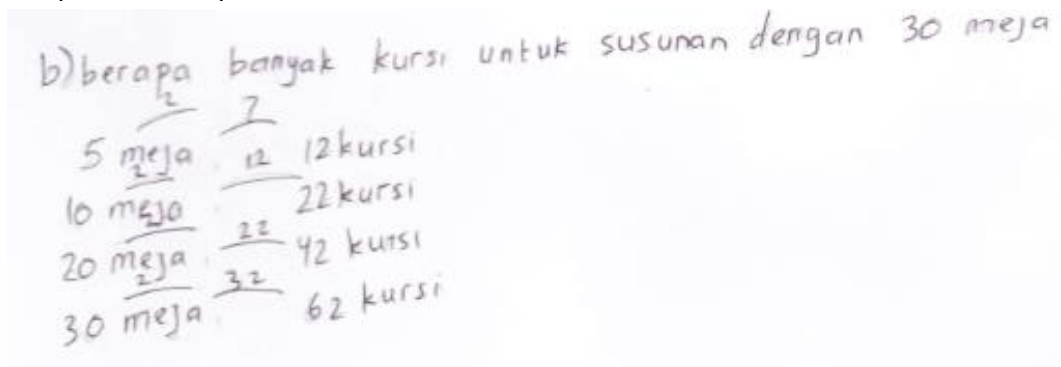 b) berapa banyak kursi untuk susunan dengan 30 meja
2 7
5 meja 12 12 kursi
2
10 meja 22 kursi
2
20 meja 22 42 kursi
2 32
30 meja 62 kursi